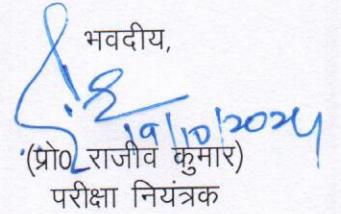 भवदीय,
19/10/2024
(प्रो0 राजीव कुमार)
परीक्षा नियंत्रक